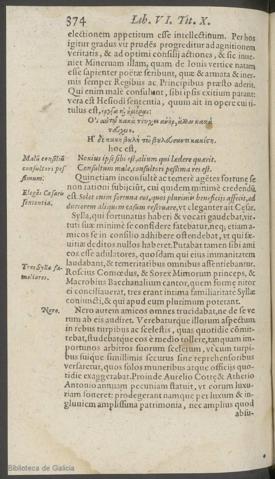 374 Lib. VI. Tit. X.
electionem appetitum esse intellectinum. Per hos
igitur gradus vir prudẽs progreditur ad agnitionem
veritatis, & ad optimi consilij actiones, & sic inue-
niet Mineruam illam, quam de Iouis vertice natam
esse sapienter poëtæ scribunt, quæ & armata & iner-
mis semper Regibus ac Principibus præsto aderit.
Qui enim malè consulunt, sibi ipsis exitium parant:
vera est Hesiodi sententia, quum ait in opere cui ti-
tulus est,
hoc est,
Malũ consiliũ
consultori pes
simum.
Noxius ipse sibi est, alium qui lædere quærit.
Consultum malè, consultori pessima res est.
Quinetiam inconsultè ac temerè agẽtes fortunæ se
non rationi subijciũt, cui quidem minimè credendũ
Elogiũ Cæsaris
sententia.
est. Solos enim fortuna rei, quos plurimis beneficijs affecit, ad
duriorem aliquem casum reseruare, vt eleganter ait Cæsar.
Sylla, qui fortunatus haberi & vocari gaudebat, vir-
tuti suæ minimè se confidere fatebatur, neq; etiam a-
micos se in consilio adhibere ostendebat, vt qui for-
tuitæ deditos nullos haberet. Putabat tamen sibi ami
cos esse adulatores, quosdam qui eius immanitatem
laudabant, & temeritati omnibus assentiebantur.
Tres Syllæ fa-
miliares.
Roscius Comœdus, & Sorex Mimorum princeps, &
Macrobius Bacchanalium cantor, quem forme nitor
ei conciliauerat, tres erant intima familiaritate Syllæ
coniuncti, & qui apud eum plurimum poterant.
Nero.
Nero autem amicos omnes trucidabat, ne de se ve
rum ab eis audiret. Verebatur que illorum aspectum
in rebus turpibus ac scelestis, quas quotidie cõmit-
tebat, studebat que eos è medio tollere, tanquam im-
portunos arbitros suorum scelerum, vt cum turpi-
bus suique similimis securus sine reprehensoribus
versaretur, quos solos muneribus atque officijs quo-
tidie exaggerabat. Proinde Aurelio Cottę & Atherio
Antonio annuam pecuniam statuit, vt eorum luxu-
riam foueret: prodegerant namque per luxum & in-
gluuiem amplissima patrimonia, nec amplius quod
absu-
Biblioteca de Galicia